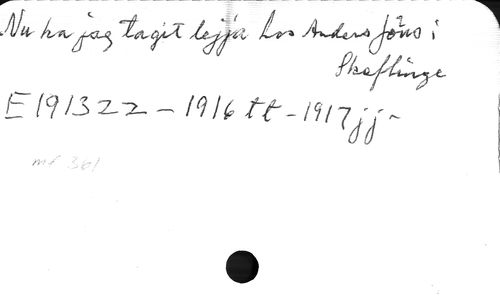 Nu ha jag tagit lejja hos Anders Jöns i
Skeflinge
E 1913 zz - 1916 tt - 1917 jj -
mf 361